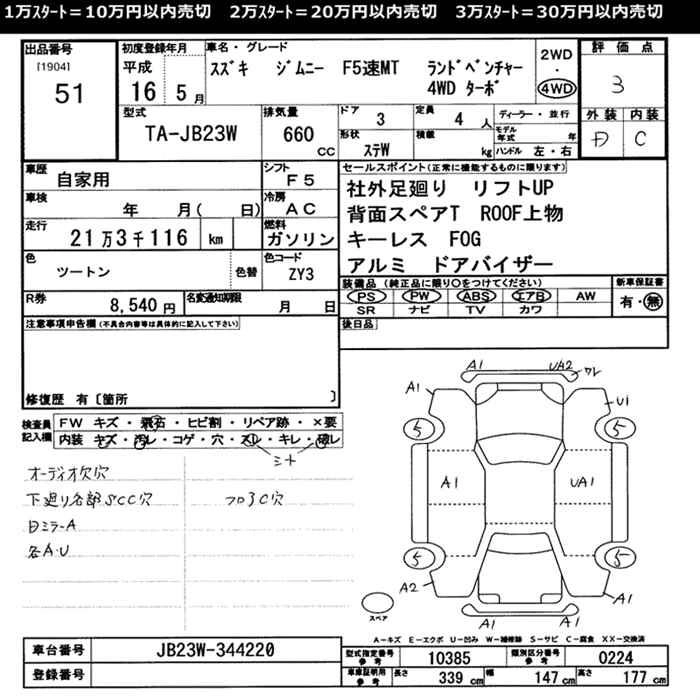 1万ｽﾀｰﾄ＝10万円以内売切　2万ｽﾀｰﾄ＝20万円以内売切　3万ｽﾀｰﾄ＝30万円以内売切
出品番号
[1904]
51
初度登録年月
平成
16 5月
車名・グレード
スズキ ジムニー F5速MT ランドベンチャー
4WD ターボ
2WD
・
4WD
評価点
3
外装 内装
D C
型式
TA-JB23W
排気量
660
CC
ドア
3
定員
4 人
形状
ステW
積載
kg
ディーラー・並行
モデル年式 年
ハンドル 左・右
車歴
自家用
シフト
F5
車検
年 月( 日)
冷房
AC
走行
21万3千116 km
燃料
ガソリン
色
ツートン
色替
色コード
ZY3
R券
8,540円
名変通知期限
月 日
セールスポイント(正常に機能するものに限ります)
社外足廻り リフトUP
背面スペアT ROOF上物
キーレス FOG
アルミ ドアバイザー
装備品 (純正品に限り○をつけてください)
PS PW ABS エアB AW
SR ナビ TV カワ
新車保証書
有・無
後日品
注意事項申告欄(不具合内容等は具体的に記入して下さい)
修復歴 有〔箇所 〕
検査員
記入欄
FW キズ・飛石・ヒビ割・リペア跡・×要
内装 キズ・汚レ・コゲ・穴・スレ・キレ・破レ
シート
オーディオ欠穴
下廻り各部SCC穴
フロアC穴
日ミラーA
各A・U
A1 UA2 ワレ
A1 U1
5 5
A1 UA1
5 5
A2 A1
A1 A1
スペア
A－キズ E－エクボ U－凹み W－補修跡 S－サビ C－腐食 XX－交換済
車台番号 JB23W-344220
登録番号
型式指定番号
参考
10385
類別区分番号
参考
0224
車庫証明用
参考
長さ 339 cm 幅 147 cm 高さ 177 cm